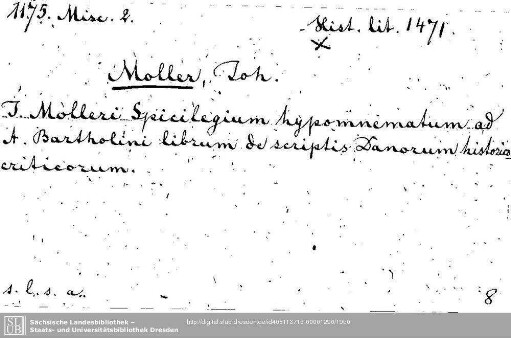 1175. Misc. 2.
Hist. lit. 1471.
x
Moller, Joh.
J. Molleri Spicilegium hypomnematum ad
A. Bartholini librum de scriptis Danorum historico
criticorum.
s. l. s. a.
8
SLUB
Sächsische Landesbibliothek –
Staats- und Universitätsbibliothek Dresden